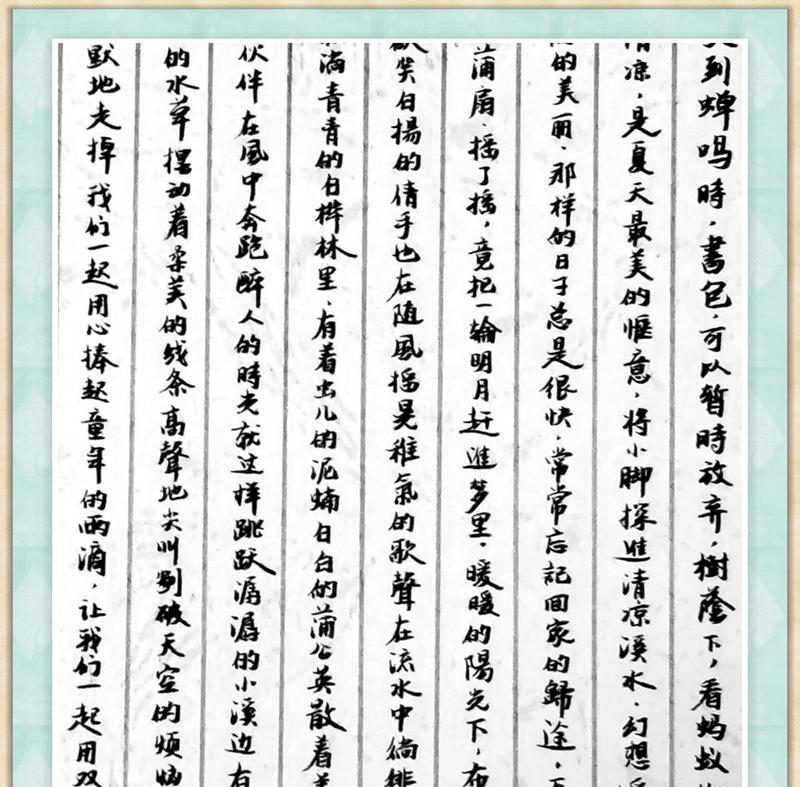 到蝉鸣時，書包，可以暂時放弃，樹蔭下，看蚂蚁
清凉，是夏天最美的惬意，将小脚探進清凉溪水，幻想
的美丽，那样的日子总是很快，常常忘記回家的歸途，
蒲扇，摇了摇，竟把一輪明月赶進梦里，暖暖的陽光下，在
白揚的倩手也在随風摇晃稚氣的歌聲在流水中徜徉
满青青的白桦林里，有着出儿的泥蛹白白的蒲公英散着
伙伴在風中奔跑醉人的時光就过样跳跃潺潺的小溪边有
的水草摆动着柔美的线条高聲地尖叫劃破天空的烦恼
默地走掉我们一起用心捧起童年的雨滴，让我们一起用双